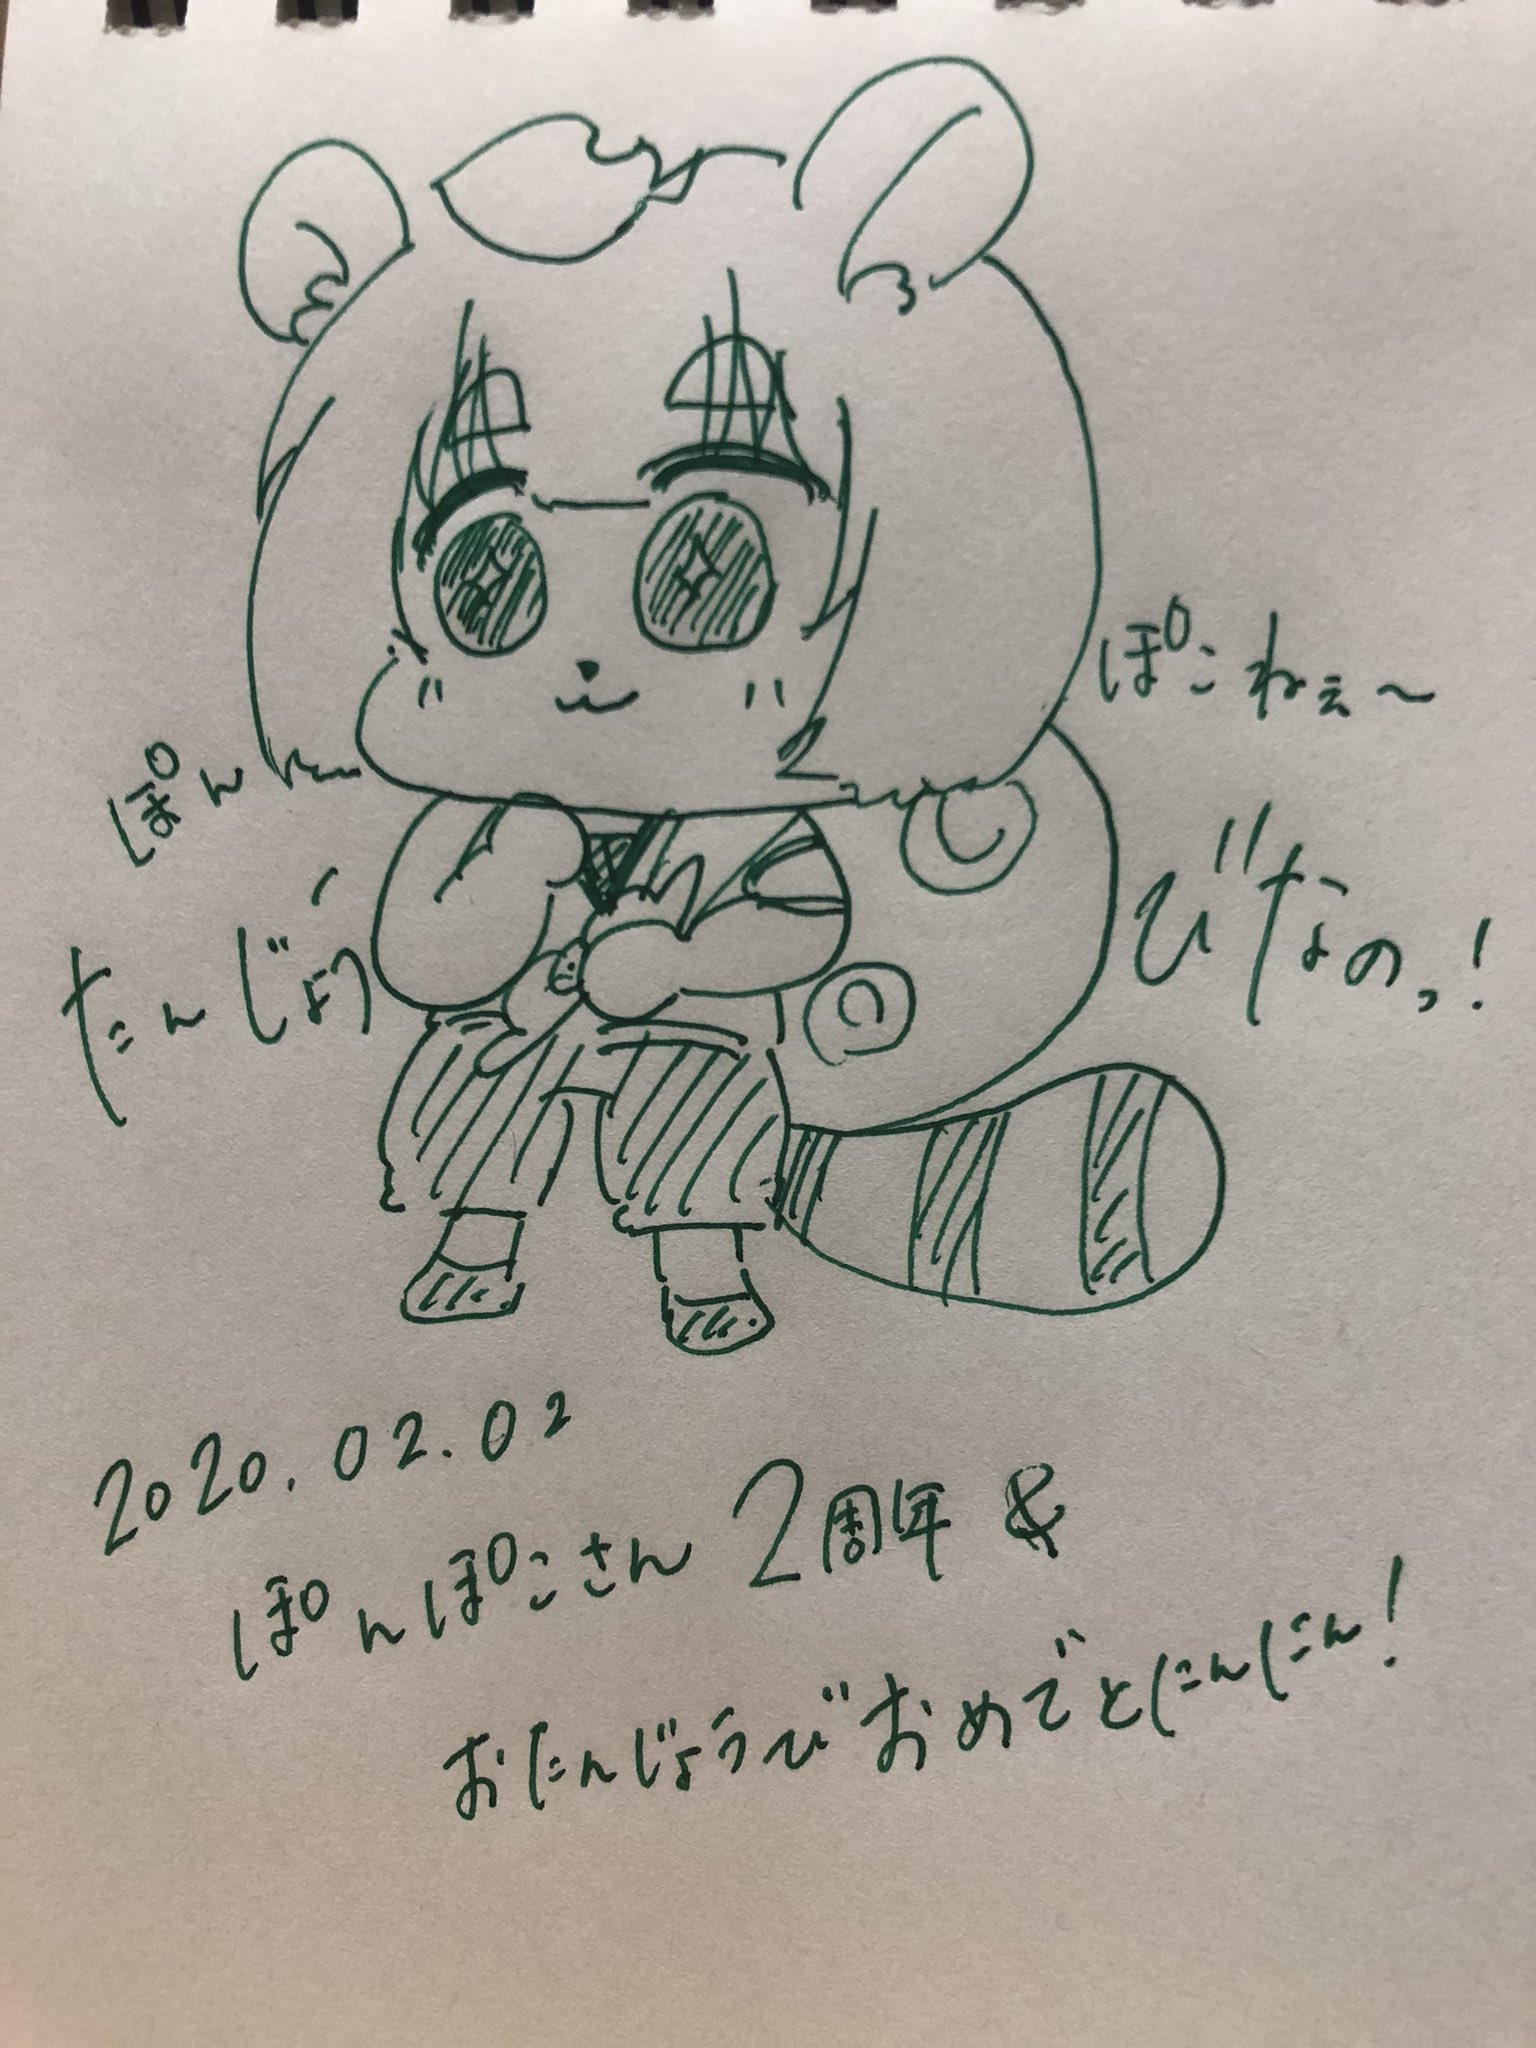 ぽん
ぽこねぇ〜
たんじょう
びなのっ!
2020.02.02
ぽんぽこさん 2周年 &
おたんじょうびおめでとにんにん!